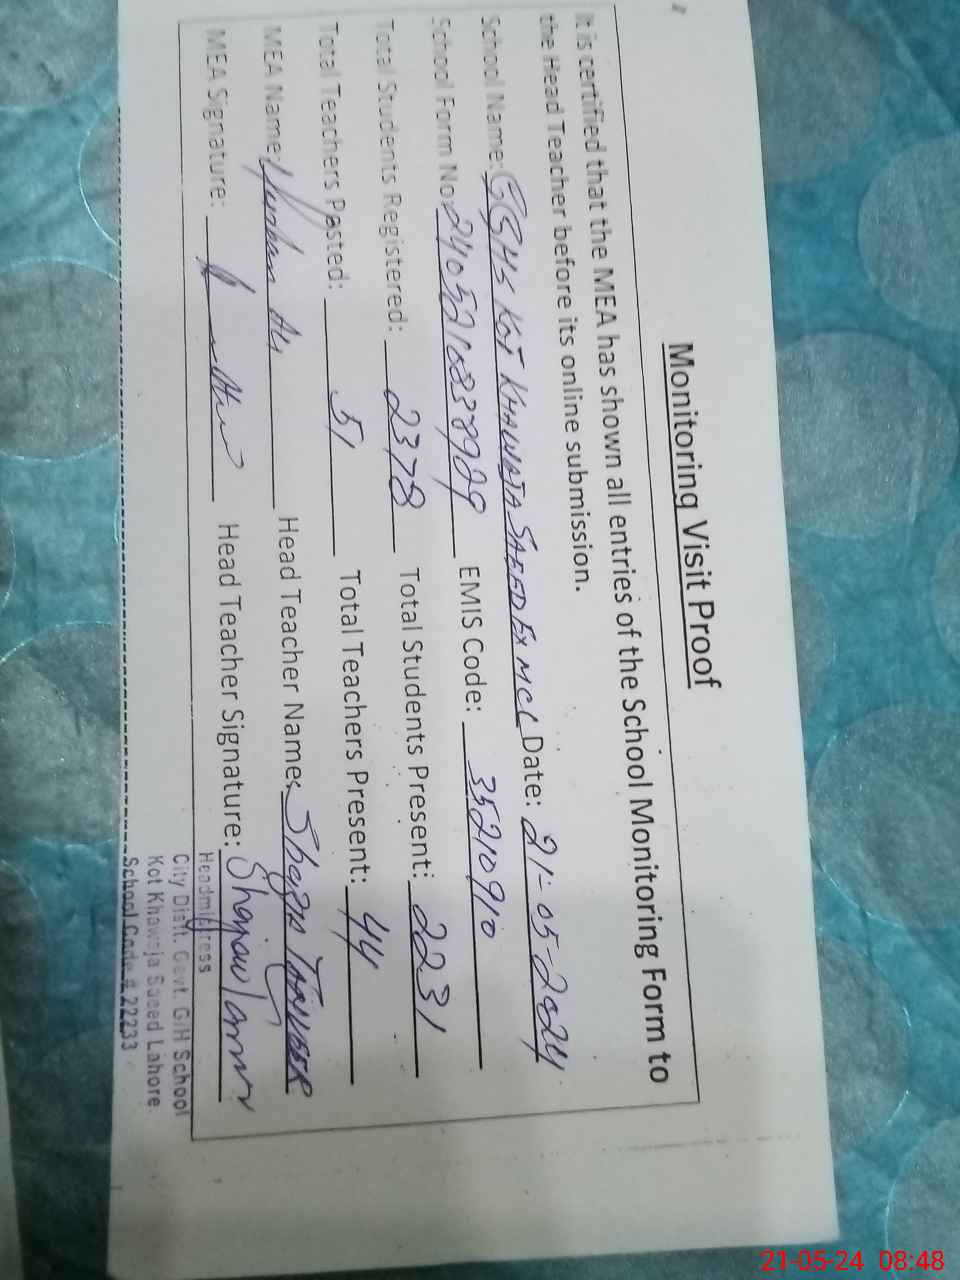 Monitoring Visit Proof
It is certified that the MEA has shown all entries of the School Monitoring Form to
the Head Teacher before its online submission.
School Name: GGHS KOT KHAWAJA SAEED EX MCL Date: 21-05-2024
School Form No: EMIS Code: 35210910
Total Students Registered: 2378 Total Students Present: 2231
Total Teachers Posted: 51 Total Teachers Present: 44
MEA Name: Ali Head Teacher Name: TANVEER
MEA Signature: Head Teacher Signature:
Headmistress
City Distt. Govt. G/H School
Kot Khawaja Saeed Lahore.
School Code # 22233
21-05-24 08:48